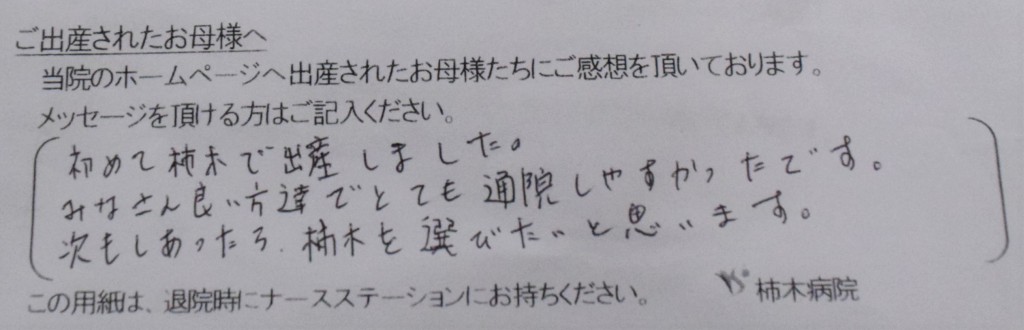 ご出産されたお母様へ
当院のホームページへ出産されたお母様たちにご感想を頂いております。
メッセージを頂ける方はご記入ください。
初めて柿木で出産しました。
みなさん良い方達でとても通院しやすかったです。
次もしあったら、柿木を選びたいと思います。
この用紙は、退院時にナースステーションにお持ちください。
柿木病院